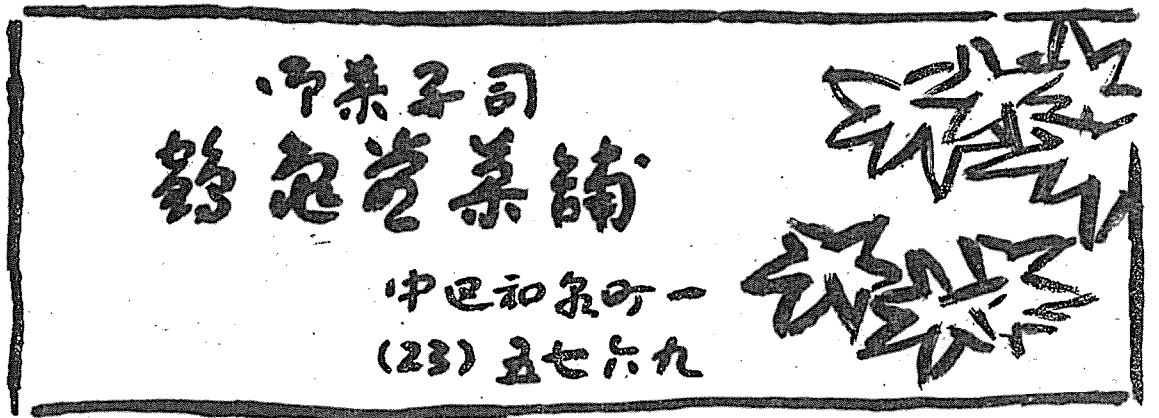 御菓子司
鶴亀堂菓舗
中区和泉町一
(23)五七六九